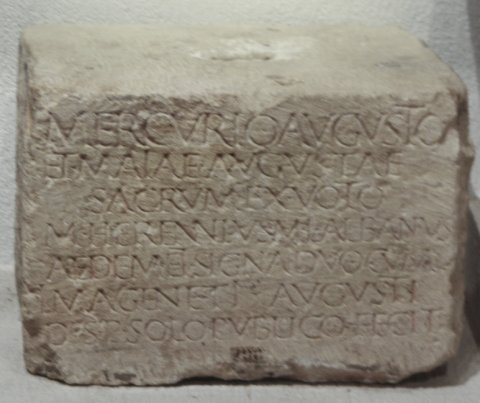 MERCVRIO AVGVSTO
ET MAIAE AVGVSTAE
SACRVM EX VOTO
M HERENNIVS M L ALBANVS
AEDEM ET SIGNA DVO CVM
IMAGINE TI AVGVSTI
D S P SOLO PVBLICO FECIT